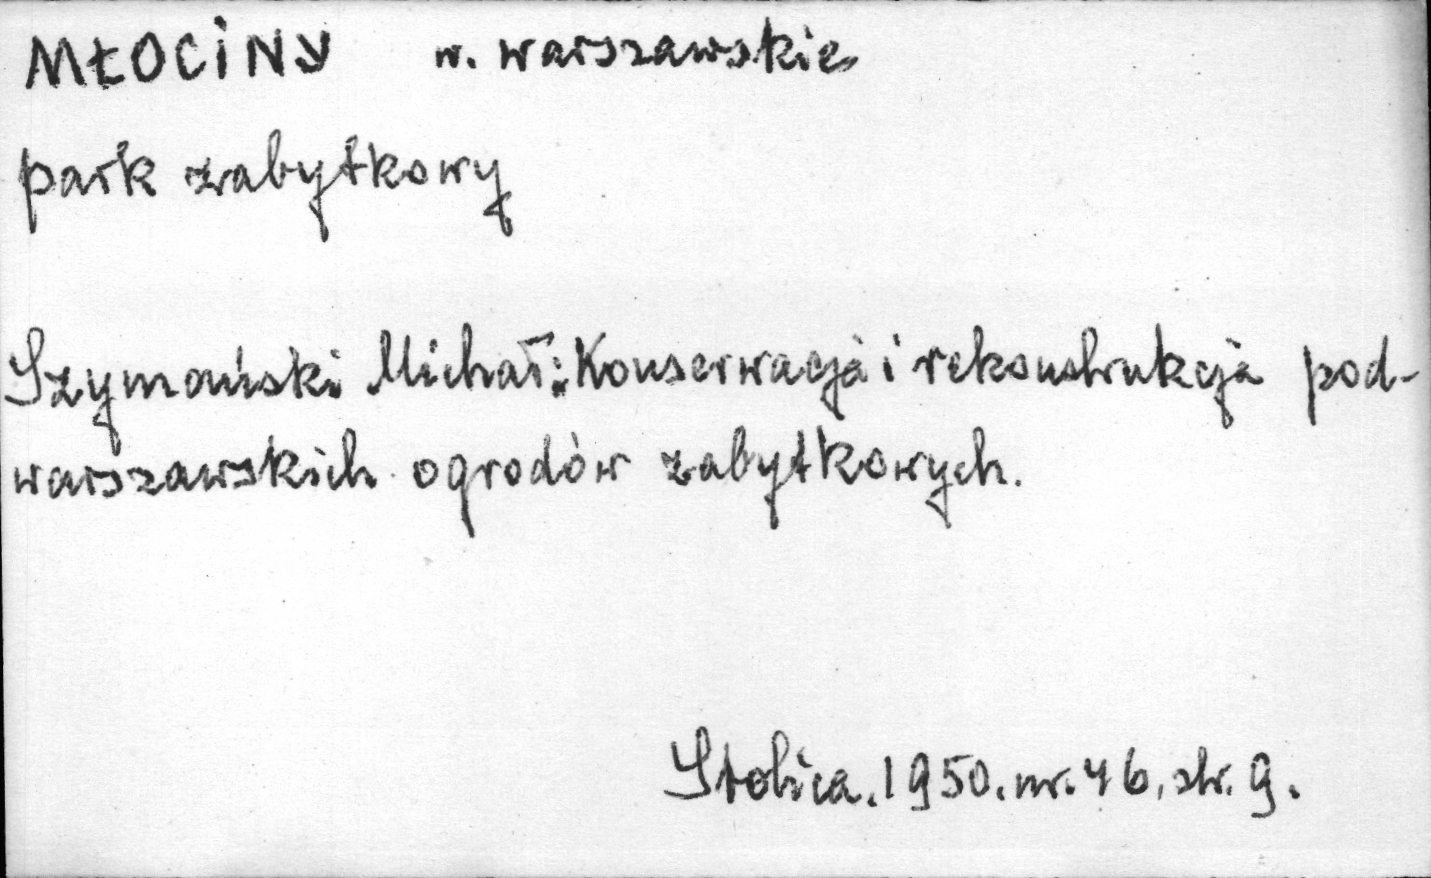 MŁOCINY w. warszawskie
park zabytkowy
Szymański Michał: Konserwacja i rekonstrukcja pod-
warszawskich ogrodów zabytkowych.
Stolica. 1950. nr. 46, str. 9.